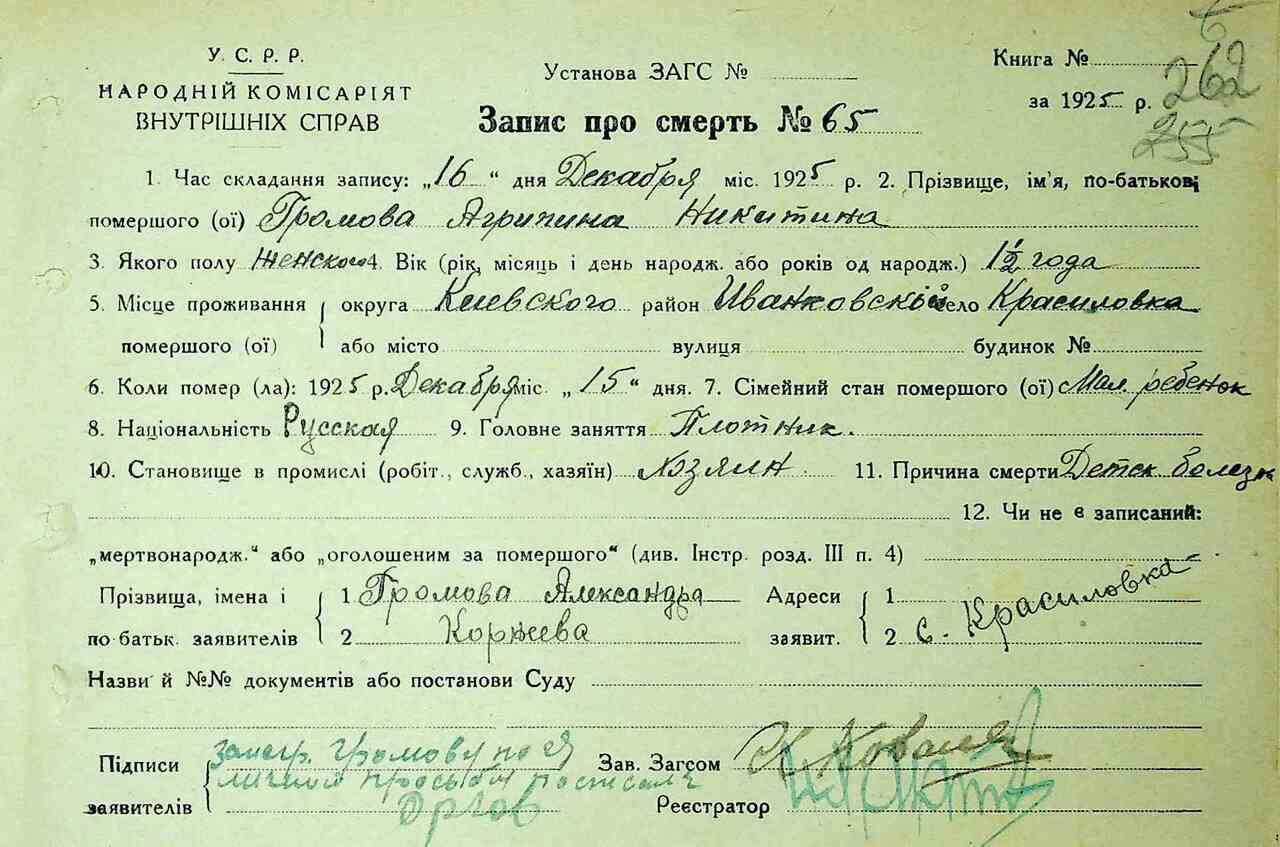 У. С. Р. Р.
НАРОДНІЙ КОМІСАРІЯТ
ВНУТРІШНІХ СПРАВ
Установа ЗАГС №
Запис про смерть № 65
Книга №
за 1925 р.
262
255
1. Час складання запису: „16“ дня Декабря міс. 1925 р. 2. Прізвище, ім'я, по-батькові
помершого (ої) Громова Агрипина Никитина
3. Якого полу Женского 4. Вік (рік, місяць і день народж. або років од народж.) 1½ года
5. Місце проживання округа Киевского район Иванковский село Красиловка
помершого (ої) або місто вулиця будинок №
6. Коли помер (ла): 1925 р. Декабря міс. „15“ дня. 7. Сімейний стан помершого (ої) Мал. ребенок
8. Національність Русская 9. Головне заняття Плотник.
10. Становище в промислі (робіт., служб., хазяїн) Хозяин 11. Причина смерти Детск. болезн
12. Чи не є записаний:
„мертвонародж.“ або „оголошеним за помершого“ (див. Інстр. розд. III п. 4)
Прізвища, імена і 1 Громова Александра Адреси 1
по-батьк. заявителів 2 Коржева заявит. 2 с. Красиловка
Назви й №№ документів або постанови Суду
Підписи Громову по ея Зав. Загсом
личной просьбы
заявителів Реєстратор